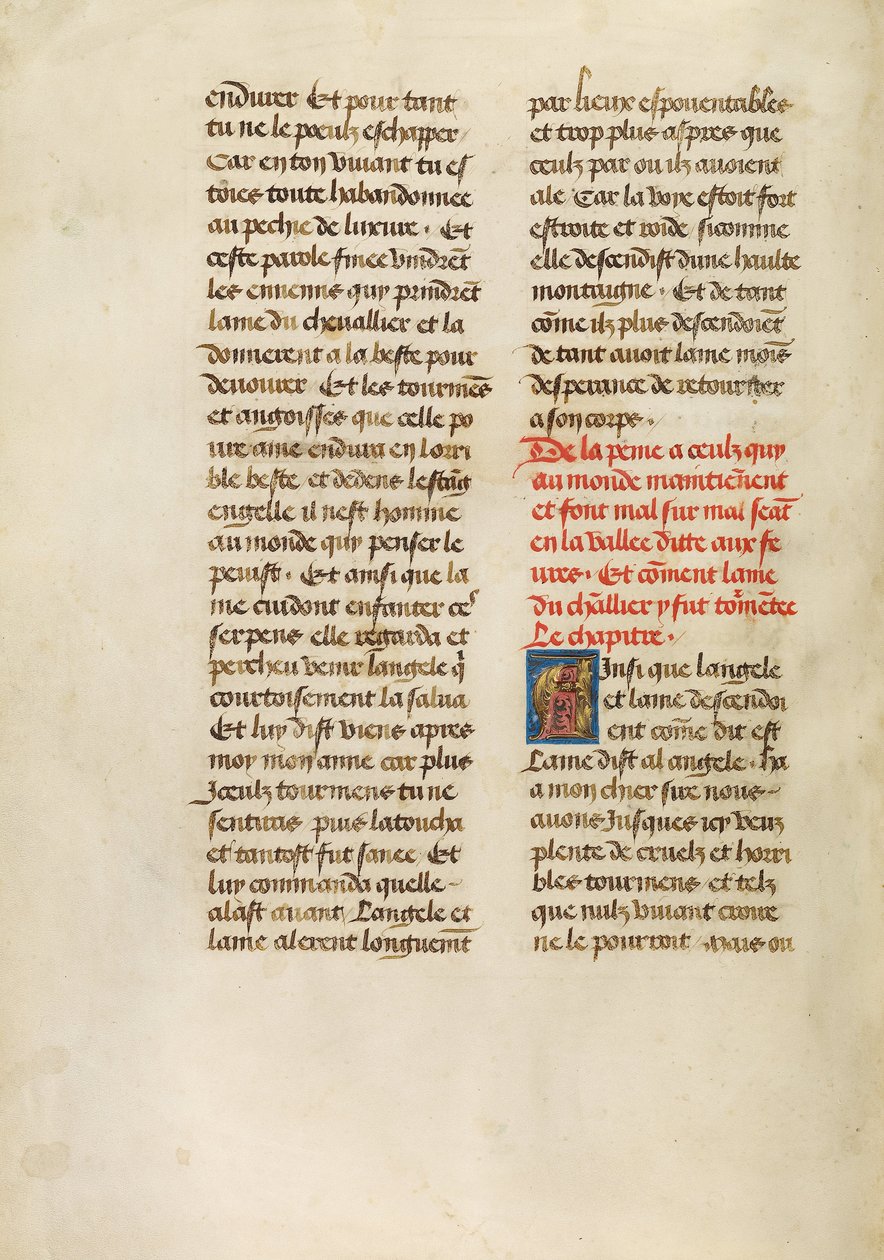 endurer Et pour tant
tu ne le poeulz eschapper
Car en ton viuant tu es
toies toute habandonnee
au pechie de luxure. Et
ceste parole finee vindrẽt
les ennemis quy prindrẽt
lame du cheuallier et la
donnerent a la beste pour
deuourer Et les tourmẽs
et angoisses que celle po
ure ame endura en lorri
ble beste et dedens lestãg
engelle il nest homme
au monde quy penser le
peuist. Et ainsi que la
me cuidont enfanter ces
serpens elle regarda et
percheu venir langele q̃
courtoisement la salua
Et luy dist viens apres
moy mon amie car plus
Iceulz tourmens tu ne
sentiras puis latoucha
et tantost fut sanee Et
luy commanda quelle
alast auant Langele et
lame alerent longuemẽt
par lieux espouentables
et trop plus aspres que
ceulz par ou ilz auoient
ale Car la voye estoit fort
estroite et roide sicomme
elle descendist dune haulte
montaigne. Et de tant
cõme ilz plus descendoiẽt
de tant auoit lame moĩs
desperance de retourner
a son corps.
De la peine a ceulz quy
au monde maintiẽnent
et font mal sur mal seãt
en la vallee ditte aux fe
ures. Et cõment lame
du chãllier y fut tormẽtee
Le chapitre.
Ainsi que langele
et lame descendoi
ent cõme dit est
Lame dist al angele. ha
a mon chier sire nous
auons Iusques icy veuz
plente de cruelz et horri
bles tourmens et telz
que nulz viuant croire
ne le pourroit Mais ou